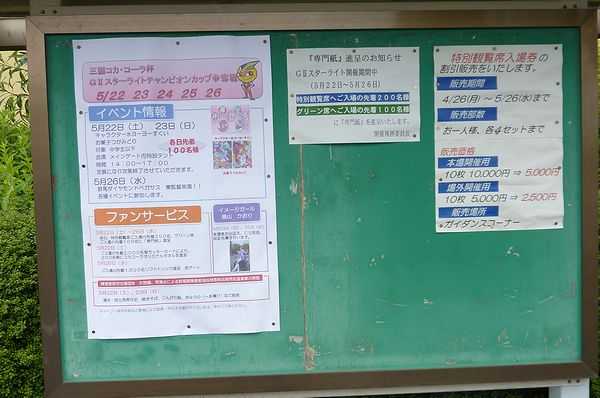 三国コカ・コーラ杯
GⅡスターライトチャンピオンカップ争奪戦
5/22 23 24 25 26
イベント情報
5月22日(土) 23日(日)
キャラクター水ヨーヨーすくい
お菓子つかみどり
対象 中学生以下
各日先着
100名様
会場 メインゲート内特設テント
時間 14:00~17:00
定員になり次第終了させていただきます。
お菓子つかみどり
5月26日(水)
群馬ダイヤモンドペガサス 秦監督来場!!
各種イベントに参加します。
ファンサービス
5月22日(土)~26日(水)
5月22日(土)
5月26日(水)
イメージガール
桃山 かおり
5月22日(土)、23日(日)
『専門紙』進呈のお知らせ
GⅡスターライト開催期間中
(5月22日~5月26日)
特別観覧席へご入場の先着200名様
グリーン席へご入場の先着100名様
に『専門紙』を進呈いたします。
開催執務委員長
特別観覧席入場券の
割引販売をいたします。
販売期間
4/26(月)~5/26(水)まで
販売部数
お一人様、各4セットまで
販売価格
本場開催用
10枚 10,000円 ⇒ 5,000円
場外開催用
10枚 5,000円 ⇒ 2,500円
販売場所
ガイダンスコーナー